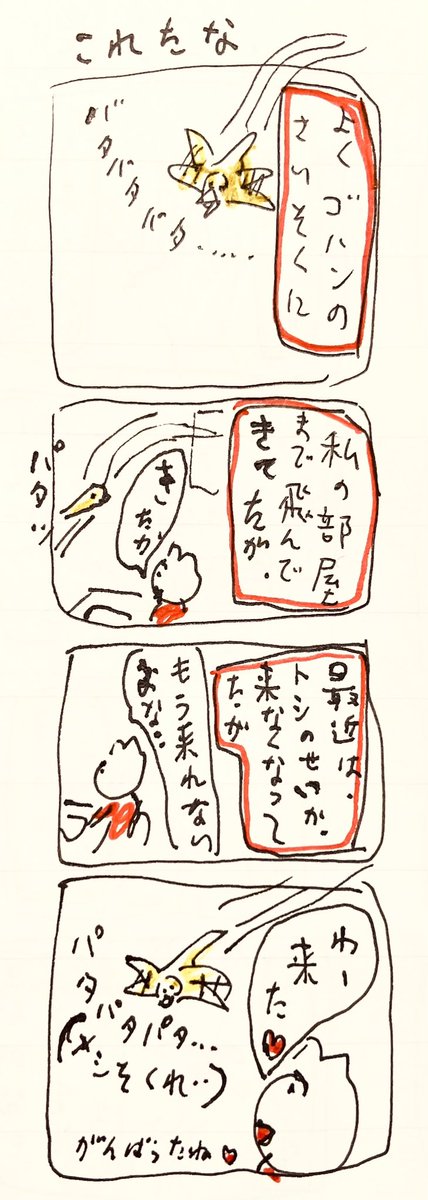 これたな
よくゴハンの
さいそくに
バタバタバタバタ.....
私の部屋
まで飛んで
きてたが.
きたか
パタッ
最近は.
トシのせいか.
来なくなって
たが
もう来れない
かな..
わー
来た
パタパタパタ...
(メシをくれ..)
がんばったね